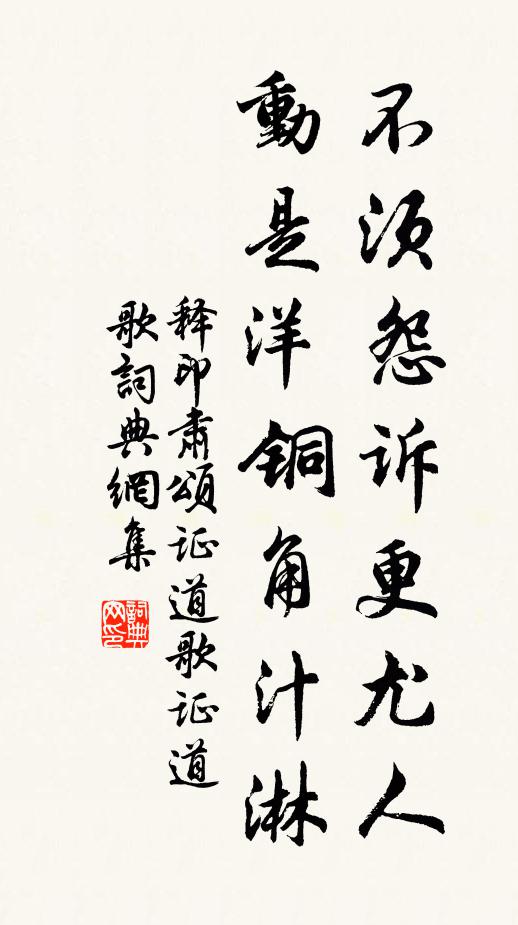 不须怨诉更尤人
動是洋铜角汁淋
释印肃頌证道歌证道
歌詞典網集
詞典网印